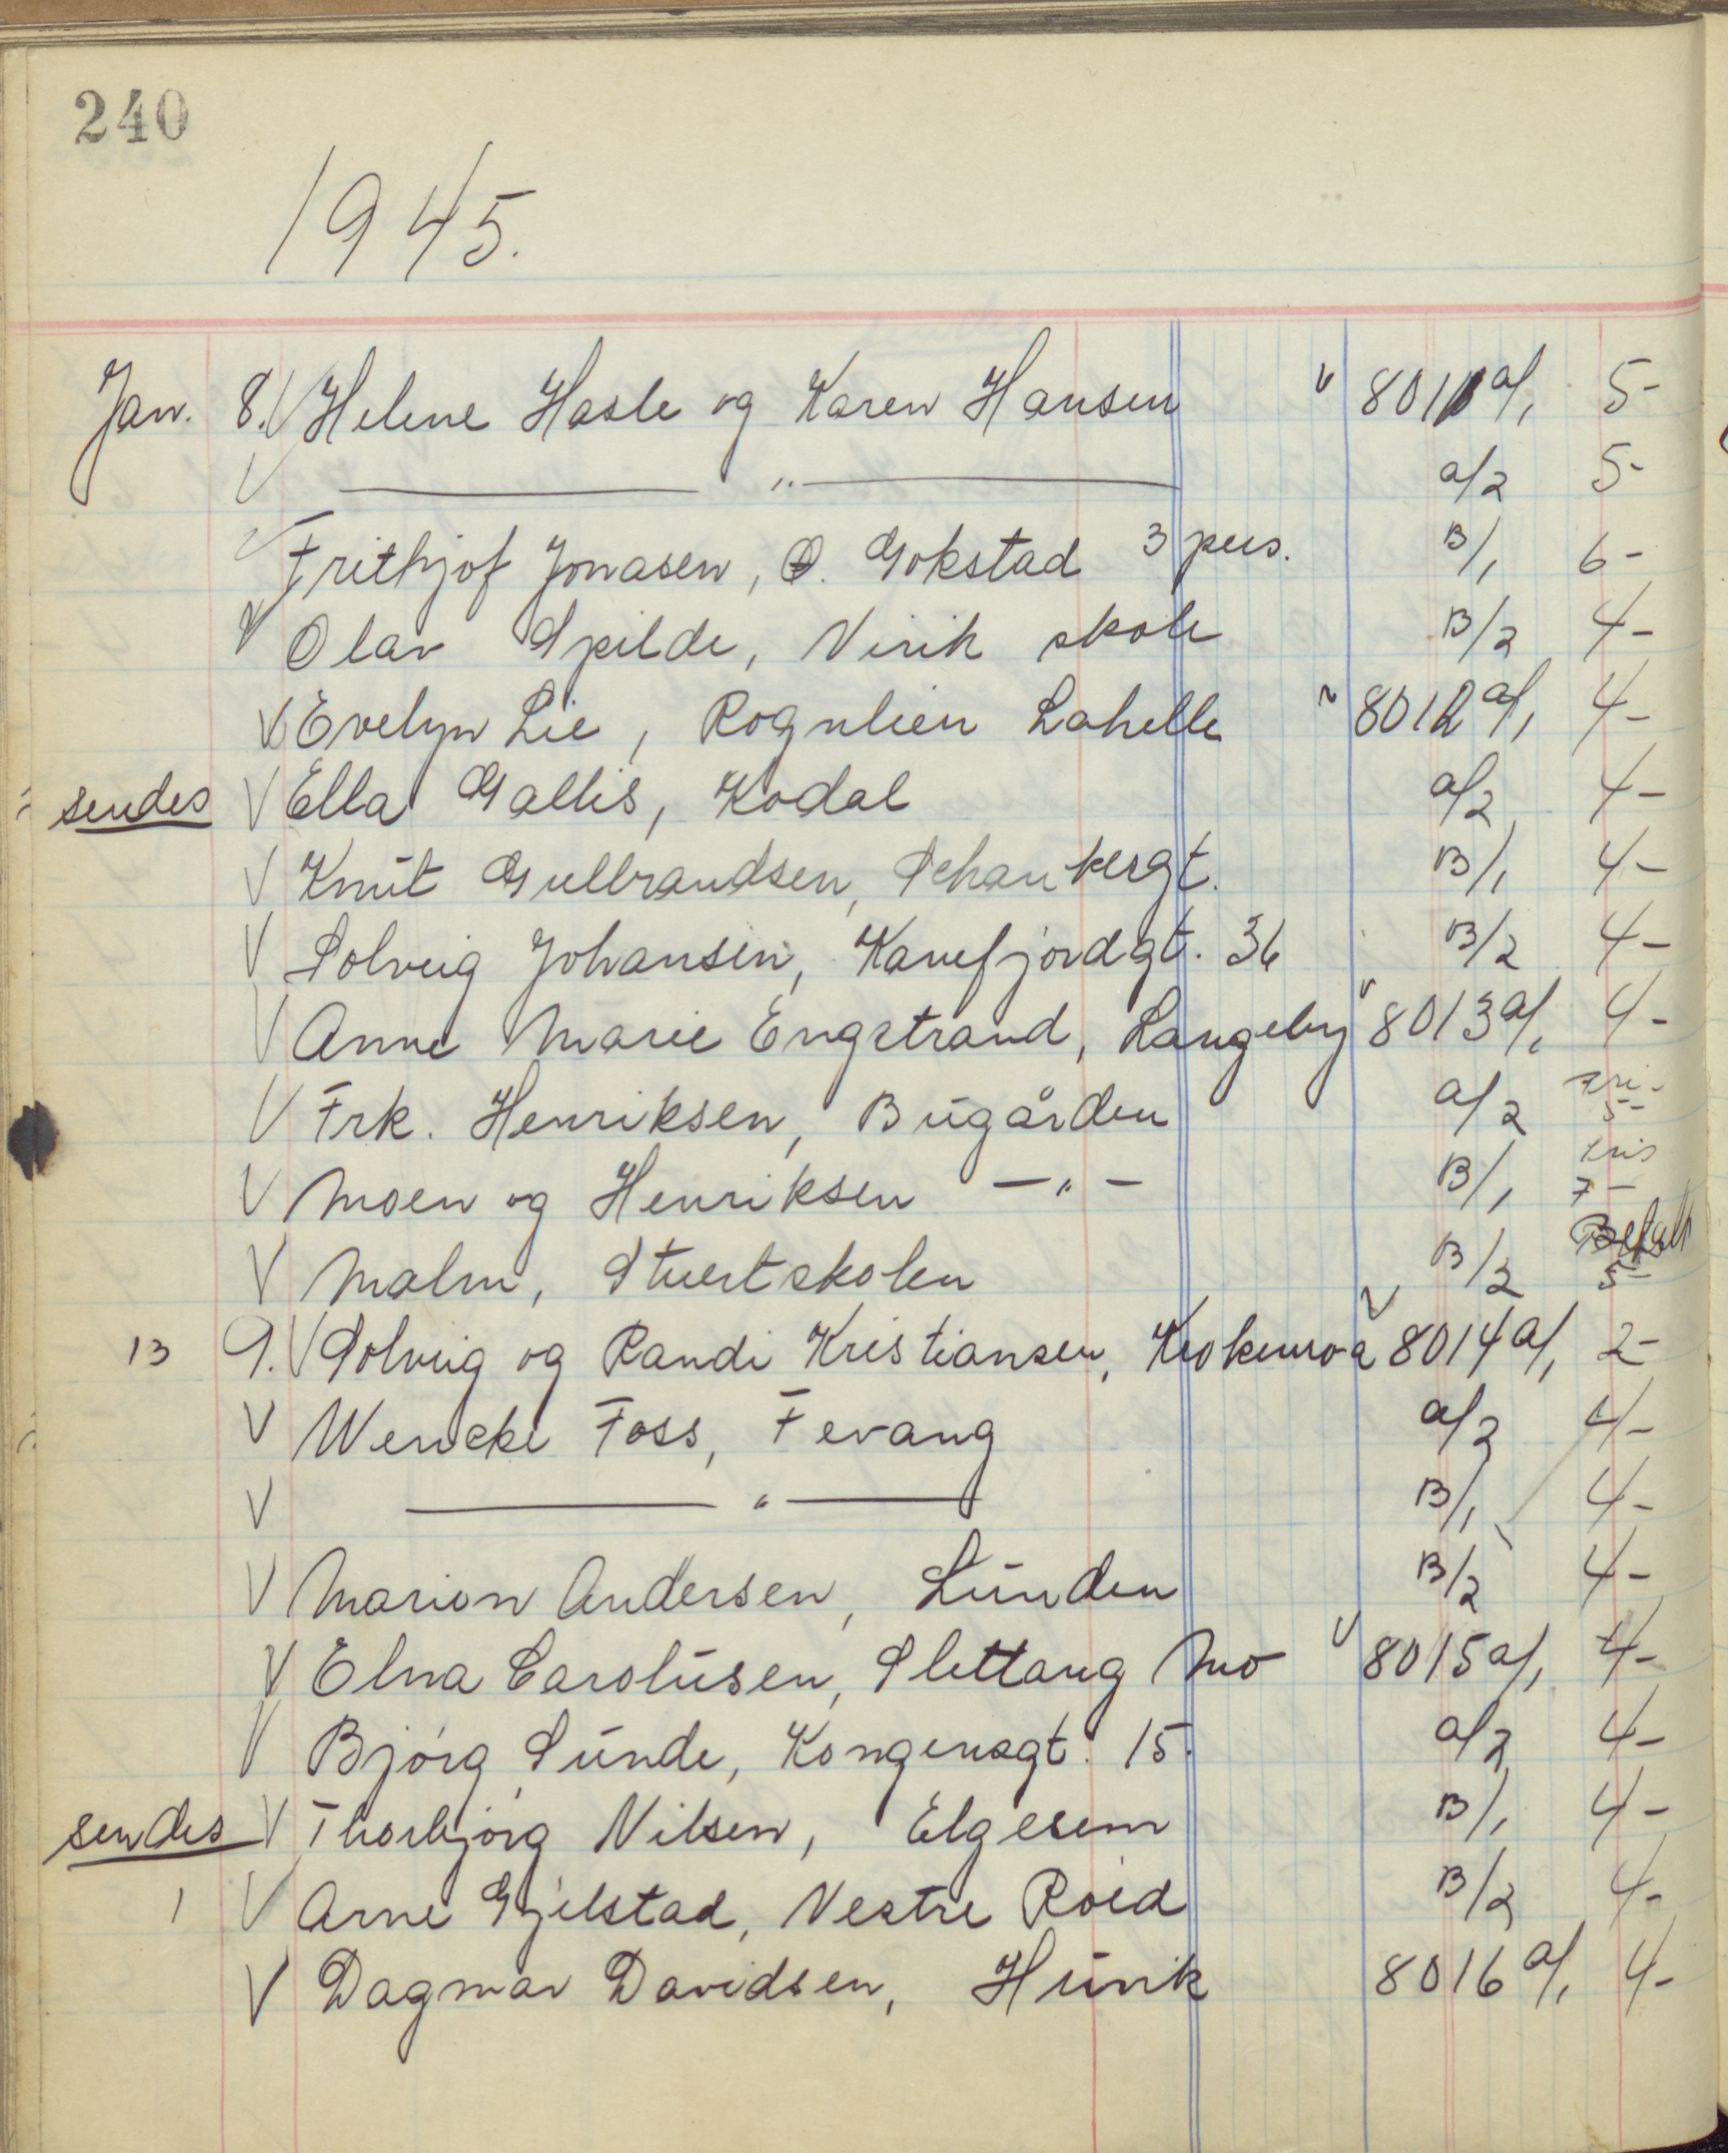 240
1945.
Jan. 8. V Helene Hasle og Karen Hansen v 8011 a/1 5-
V —— " —— a/2 5-
V Frithjof Jonasen, Ø. Gokstad 3 pers. B/1 6-
V Olav Spilde, Virik skole B/2 4-
V Evelyn Lie, Rognlien Lahelle v 8012 a/1 4-
sendes V Ella Gallis, Kodal a/2 4-
V Knut Gullbrandsen, Schanbergt. B/1 4-
V Solveig Johansen, Kamfjordgt. 36 B/2 4-
V Anne Marie Engstrand, Langeby v 8013 a/1 4-
V Frk. Henriksen, Bugården a/2 5-
V Moen og Henriksen — " — B/1 7-
V Malm, Stuertskolen B/2 Betalt 5-
13 9. V Solveig og Randi Kristiansen, Krokemoa v 8014 a/1 2-
V Wencke Foss, Fevang a/2 4-
V —— " —— B/1 4-
V Marion Andersen, Lunden B/2 4-
V Elna Carolusen, Slettang Mo v 8015 a/1 4-
V Bjørg Sunde, Kongensgt. 15. a/2 4-
sendes V Thorbjørg Nilsen, Elgesem B/1 4-
1 V Arne Gjelstad, Vestre Rød B/2 4-
V Dagmar Davidsen, Hunik 8016 a/1 4-